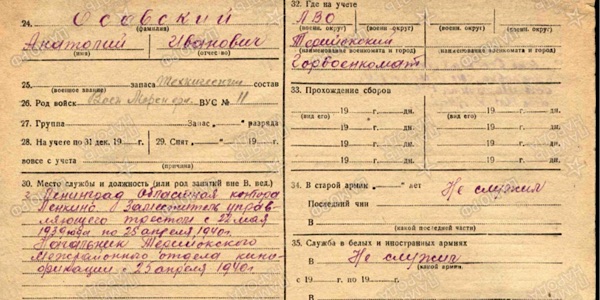 24. Осовский
(фамилия)
Анатолий Иванович
(имя) (отчество)
25. запаса Технический состав
(военное звание)
26. Род войск Воен. Морск. ВУС № 11
27. Группа Запас разряда
28. На учете по 31 дек. 19 г. 29. Снят 19 г.
вовсе с учета
(причина)
30. Место службы и должность (или род занятий вне В. вед.)
Ленинград Областная контора
Ленкино. Заместитель управ-
ляющего трестом с 22 мая
1939 года по 25 апреля 1940 г.
Начальник Териокского
Межрайонного отдела кино-
фикации с 25 апреля 1940 г.
32. Где на учете
ЛВО
(военн. округ) (военн. округ)
Териокский
(наименование военкомата и город) (наименование военкомата и город)
Горвоенкомат
33. Прохождение сборов
19 г. дн. 19 г. дн.
(вид его) (вид его)
19 г. дн. 19 г. дн.
19 г. дн. 19 г. дн.
19 г. дн. 19 г. дн.
34. В старой армии лет Не служил
Последний чин
(в какой последней части)
35. Служба в белых и иностранных армиях
В Не служил
(какой армии)
с 19 г. по 19 г.
в